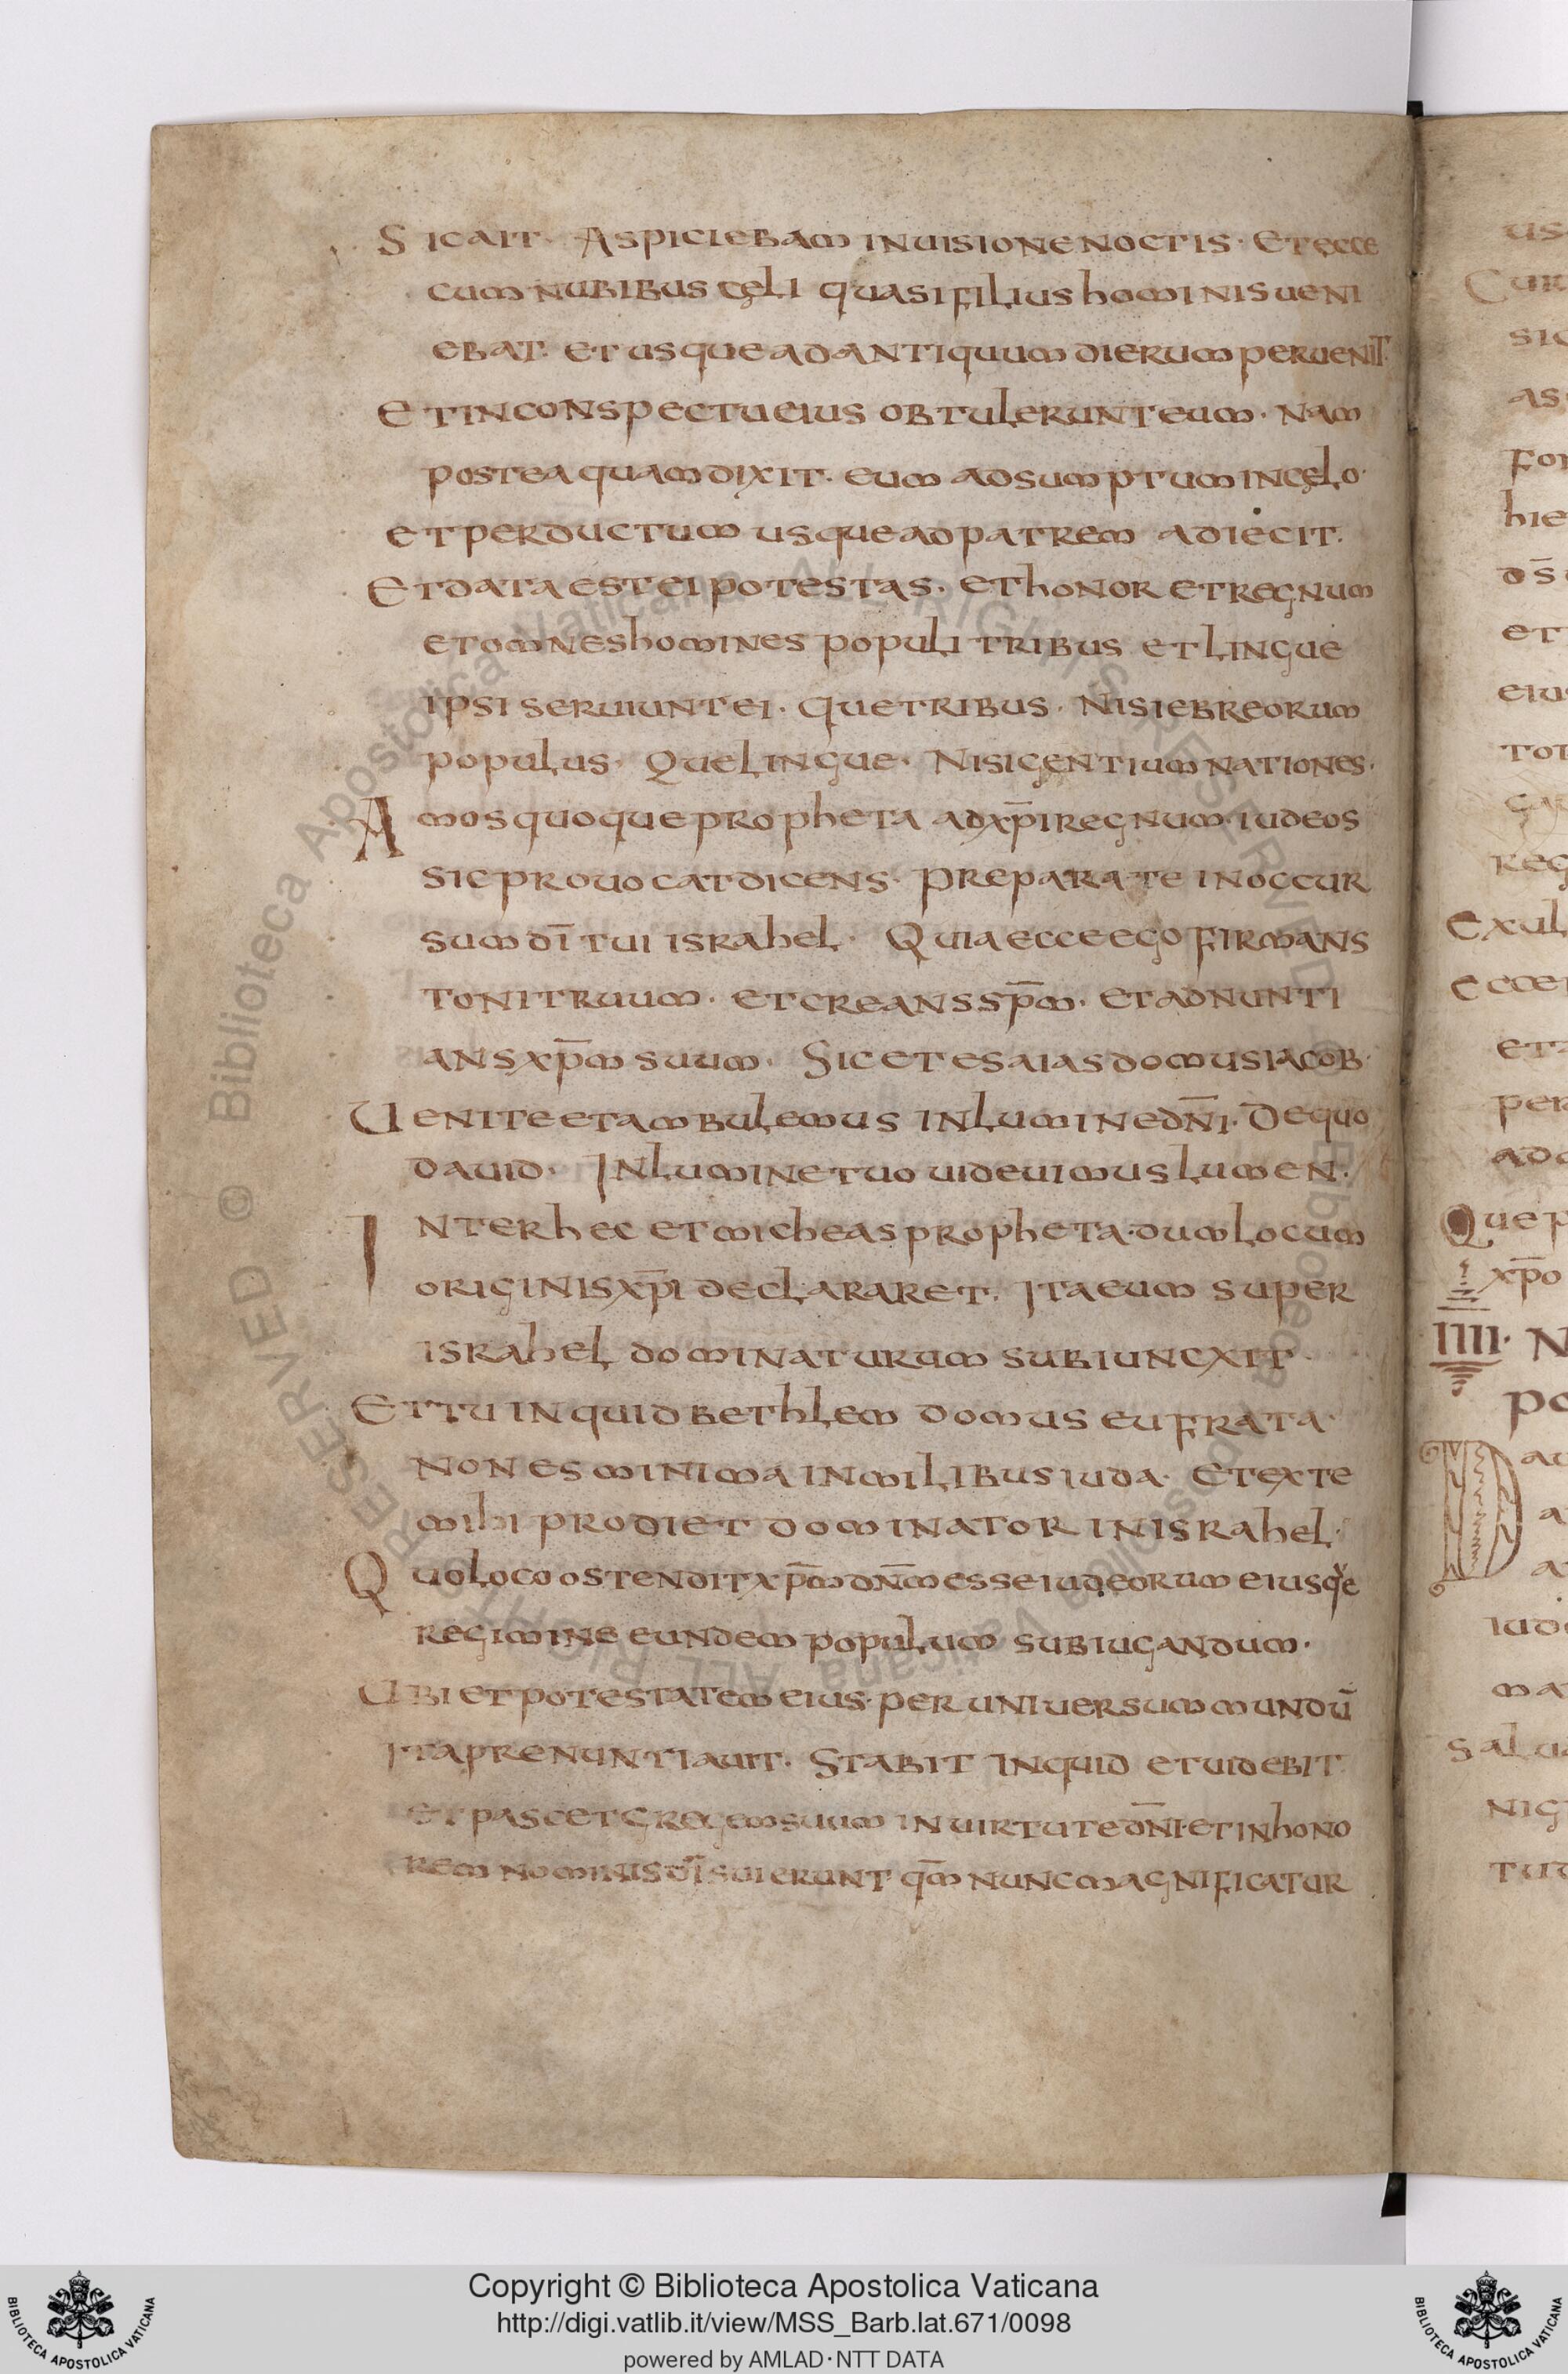 Sic ait. Aspiciebam in uisione noctis. Et ecce
cum nubibus cęli quasi filius hominis ueni
ebat. et usque ad antiquum dierum peruenit.
Et in conspectu eius obtulerunt eum. Nam
postea quam dixit. eum adsumptum in cęlo.
et perductum usque ad patrem adiecit.
Et data est ei potestas. et honor et regnum
et omnes homines populi tribus et lingue
ipsi seruiunt ei. que tribus. Nisi ebreorum
populus. Que lingue. Nisi gentium nationes.
Amos quoque propheta ad xp̄i regnum iudeos
sic prouocat dicens. Preparate in occur
sum dī tui israhel. Quia ecce ego firmans
tonitruum. et creans sp̄m. et adnunti
ans xp̄m suum. Sic et esaias domus iacob.
Uenite et ambulemus in lumine dn̄i. De quo
dauid. In lumine tuo uideuimus lumen.
Inter hec et micheas propheta. dum locum
originis xp̄i declararet. Ita eum super
israhel dominaturum subiuncxit.
Et tu inquid bethlem domus eufrata.
non es minima in milibus iuda. Et ex te
mihi prodiet dominator in israhel.
Quo loco ostendit xp̄m dn̄m esse iudeorum eiusq:e
regimine eundem populum subiugandum.
Ubi et potestatem eius. per uniuersum mundū
ita prenuntiauit. Stabit inquid et uidebit
et pascet gregem suum in uirtute dn̄i. et in hono
rem nominis dī sui erunt qm̄ nunc magnificatur
us
Cur
sic
as
for
hie
ds̄
et
eius
tot
reg
Exul
ecce
et
per
ad
Que p
xp̄o
IIII. N
po
Dau
a
a
iud
ma
Salu
nig
tu
© Biblioteca Apostolica Vaticana ALL RIGHTS RESERVED © Biblioteca Apostolica Vaticana ALL RIGHTS RESERVED
BIBLIOTECA APOSTOLICA VATICANA
Copyright © Biblioteca Apostolica Vaticana
http://digi.vatlib.it/view/MSS_Barb.lat.671/0098
powered by AMLAD·NTT DATA
BIBLIOTECA APOSTOLICA VATICANA